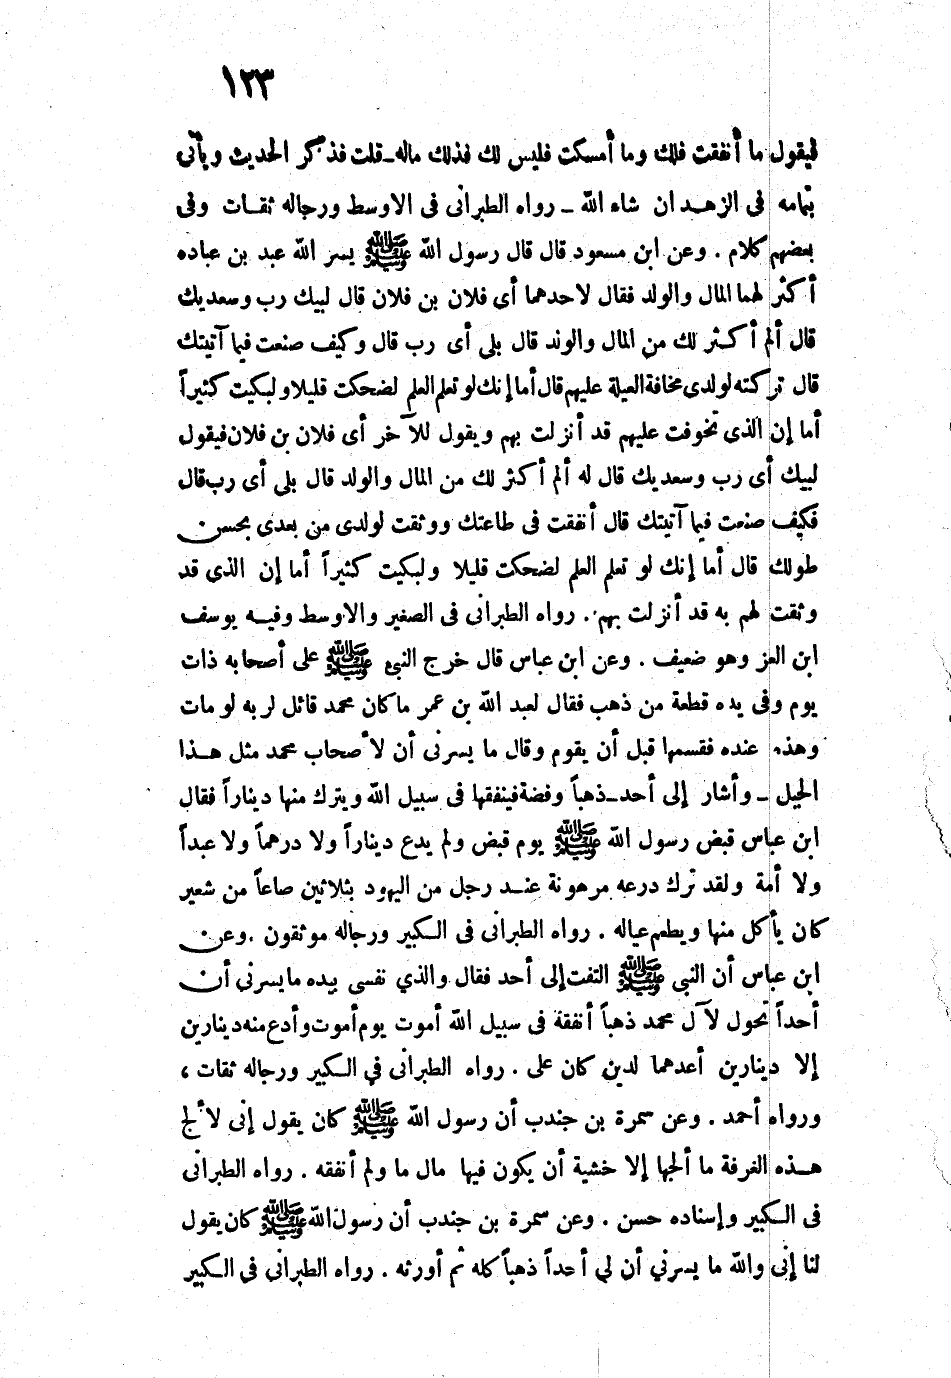 ١٢٣
فيقول ما أنفقت فلك وما أمسكت فليس لك فذلك ماله ـ قلت فذكر الحديث ويأتى
بتمامه فى الزهـد ان شاء الله ـ رواه الطبرانى فى الاوسط ورجاله ثقـات وفى
بعضهم كلام . وعن ابن مسعود قال قال رسول الله ﷺ يسر الله عبد بن عباده
أكثر لهما المال والولد فقال لاحدهما أى فلان بن فلان قال لبيك رب وسعديك
قال ألم أكـثر لك من المال والوند قال بلى أى رب قال وكيف صنعت فيما آتيتك
قال تركته لولدى مخافة العيلة عليهم قال أما إنك لو تعلم العلم لضحكت قليلا ولبكيت كثيراً
أما إن الذى تخوفت عليهم قد أنزلت بهم ويقول للآخر أى فلان بن فلان فيقول
لبيك أى رب وسعديك قال له ألم أكثر لك من المال والولد قال بلى أى رب قال
فكيف صنعت فيما آتيتك قال أنفقت فى طاعتك ووثقت لولدى من بعدى بحسن
طولك قال أما إنك لو تعلم العلم لضحكت قليلا ولبكيت كثيراً أما إن الذى قد
وثقت لهم به قد أنزلت بهم . رواه الطبرانى فى الصغير والاوسط وفيـه يوسف
ابن العز وهو ضعيف . وعن ابن عباس قال خرج النبى ﷺ على أصحابه ذات
يوم وفى يده قطعة من ذهب فقال لعبد الله بن عمر ما كان محمد قائل لربه لو مات
وهذه عنده فقسمها قبل أن يقوم وقال ما يسرنى أن لأصحاب محمد مثل هـذا
الجبل ـ وأشار إلى أحد ـ ذهباً وفضة فينفقها فى سبيل الله ويترك منها ديناراً فقال
ابن عباس قبض رسول الله ﷺ يوم قبض ولم يدع ديناراً ولا درهماً ولا عبداً
ولا أمة ولقد ترك درعه مرهونة عنـد رجل من اليهود بثلاثين صاعاً من شعير
كان يأكل منها ويطعم عياله . رواه الطبرانى فى الـكبير ورجاله موثقون . وعن
ابن عباس أن النبى ﷺ التفت إلى أحد فقال والذي نفسى بيده ما يسرنى أن
أحداً تحول لآل محمد ذهباً أنفقة فى سبيل الله أموت يوم أموت وأدع منه دينارين
إلا دينارين أعدهما لدين كان على . رواه الطبرانى في الـكبير ورجاله ثقات ،
ورواه أحمد . وعن سمرة بن جندب أن رسول الله ﷺ كان يقول إنى لألج
هـذه الغرفة ما ألجها إلا خشية أن يكون فيها مال ما ولم أنفقه . رواه الطبرانى
فى الـكبير وإسناده حسن . وعن سمرة بن جندب أن رسول الله ﷺ كان يقول
لنا إنى والله ما يسرني أن لي أحداً ذهباً كله ثم أورثه . رواه الطبرانى فى الـكبير